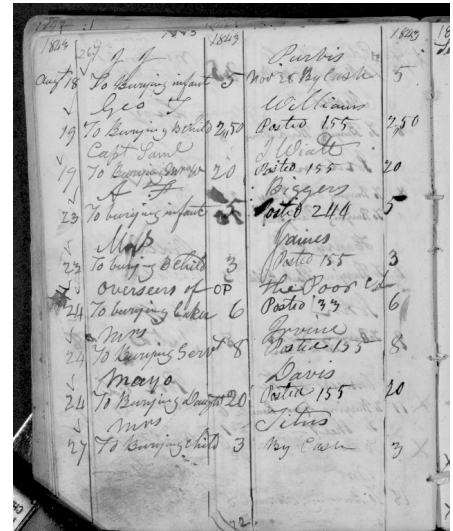 1843 1843 1843 1843
267 J J Purbis
Aug 18 To Burying infant 5 Nov 28 By Cash 5
Geo T Williams
19 To Burying Child 2,50 Posted 155 2,50
Capt Saml J Wiatt
19 To Burying 20 Posted 155 20
A Biggers
23 To burying infant 5 Posted 244 5
Mrs Jaines
23 To burying Child 3 Posted 155 3
Overseers of OP the Poor
24 To burying Baker 6 Posted 33 6
Mrs Irvine
24 To Burying Servt 8 Posted 155 8
Mayo Davis
24 To Burying Daught 20 Posted 155 20
Mrs Titus
27 To Burying Child 3 By Cash 3
72